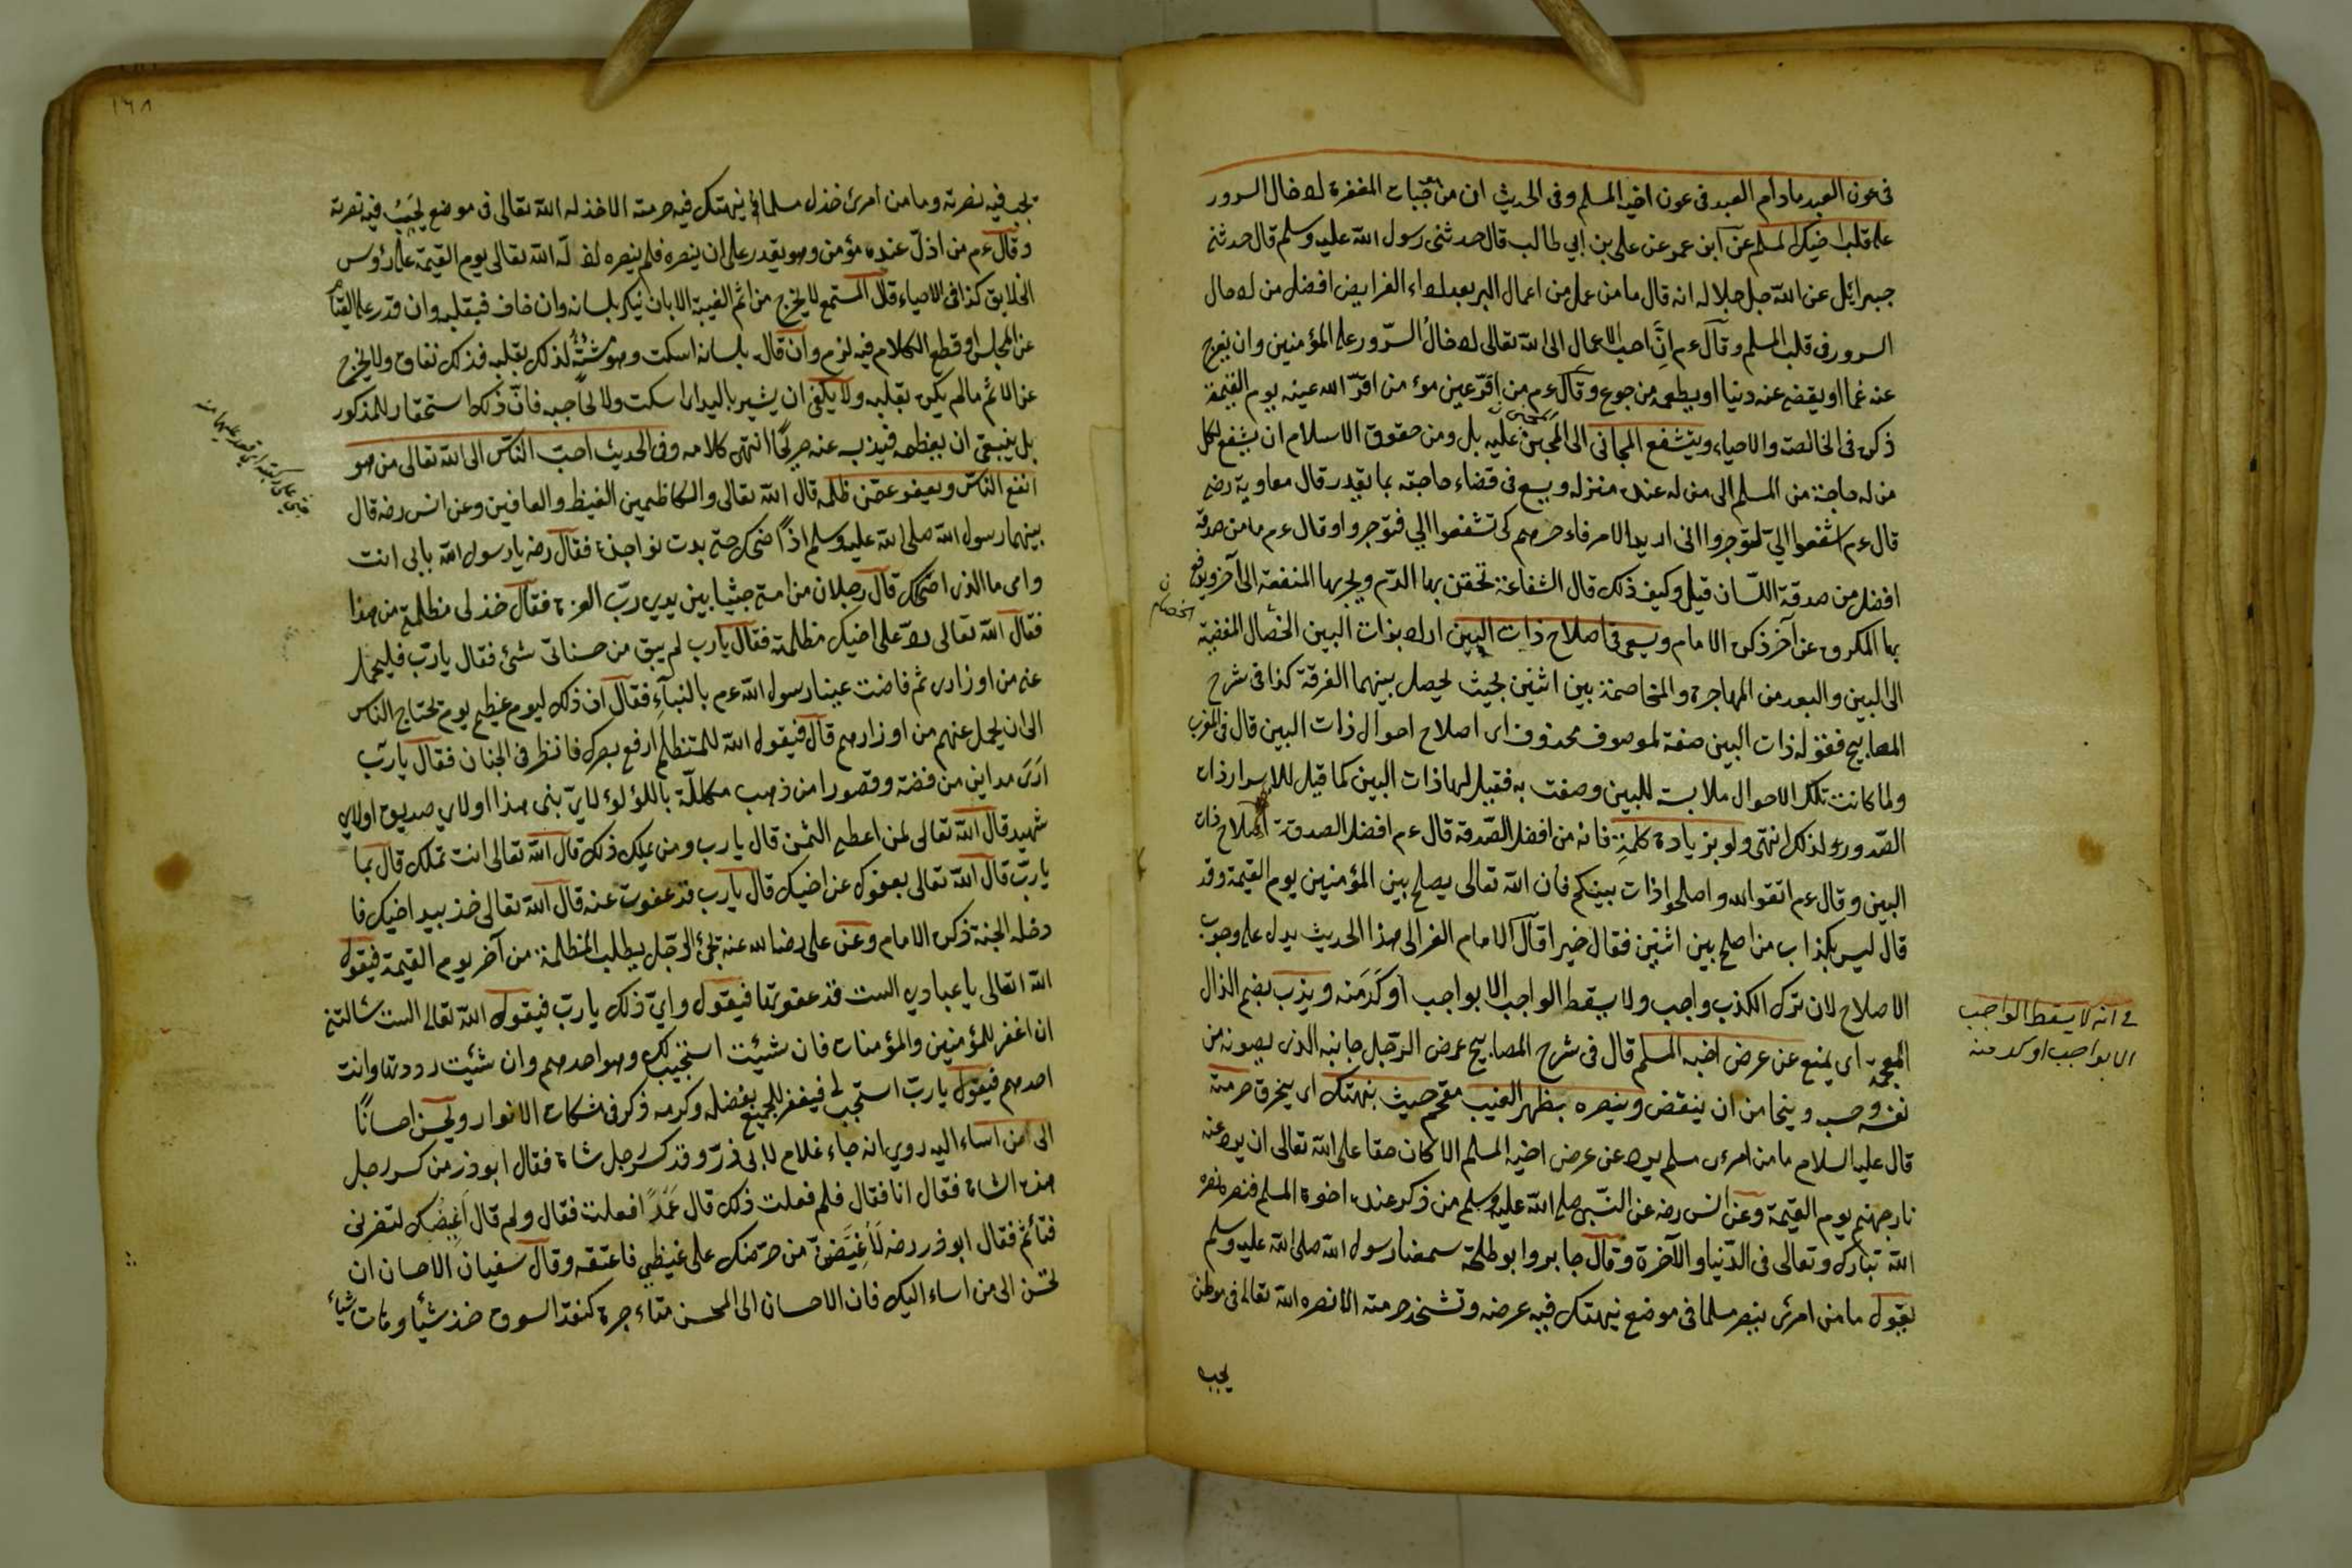 في عون العبد مادام العبد في عون اخيه المسلم وفي الحديث ان من موجبات المغفرة ادخال السرور
على قلب اخيك المسلم عن ابن عمر عن علي بن ابي طالب قال حدثني رسول الله عليه وسلم قال حدثني
جبرائل عن الله جل جلاله انه قال ما من عمل من اعمال البر بعد اداء الفرايض افضل من ادخال
السرور في قلب المسلم وقال ءم انّ احب الاعمال الى الله تعالى ادخال السّرور على المؤمنين وان يفرج
عنه غما او يقضى عنه دينا او يطعمه من جوع وقال ءم من اقرّ عين مؤمن اقرّ الله عينه يوم القيمة
ذكره في الخالصة والاحياء ويتشفع الجاني الى المجني عليه بل ومن حقوق الاسلام ان يشفع لكل
من له حاجة من المسلم الى من له عنده منزله ويسع في قضاء حاجته بما يقدر قال معاوية رضه
قال ءم اشفعوا اليّ لتوجروا انى اريد الامر فاءخرهم كى تشفعوا الي فتوجروا وقال ءم ما من صدقة
افضل من صدقة اللسان قيل وكيف ذلك قال الشفاعة تحقن بها الدم ويجر بها المنفعة الى آخر ويدفع
بها المكروه عن آخر ذكره الامام ويسعى في اصلاح ذات البين اراد بذات البين الخصال المفضية
الى البين والبعد من المهاجرة والمخاصمة بين اثنين بحيث يحصل بينهما الفرقة كذا في شرح
المصابيح فقوله ذات البين صفة لموصوف محذوف اى اصلاح احوال ذات البين قال في المغرب
ولما كانت تلك الاحوال ملابسة للبين وصفت به فقيل لها ذات البين كما قيل للاسرار ذات
الصّدور لذلك انتهى ولو بزيادة كلمة فانه من افضل الصّدقة قال ءم افضل الصدقة اصلاح ذات
البين وقال ءم اتقوا الله واصلحوا ذات بينكم فان الله تعالى يصلح بين المؤمنين يوم القيمة وقد
قال ليس بكذاب من اصلح بين اثنين فقال خيرا قال الامام الغزالى هذا الحديث يدل على وجوب
الاصلاح لان ترك الكذب واجب ولا يسقط الواجب الا بواجب اوكد منه ويذب بضم الذال
المعجمة اى يمنع عن عرض اخيه المسلم قال في شرح المصابيح عرض الرّجل جانبه الذى يصونه من
نفسه وحسبه ويتحامى ان ينتقص وينصره بظهر الغيب مقحم حيث ينهتك اى يخرق حرمته
قال عليه السلام ما من امرئ مسلم يرد عن عرض اخيه المسلم الا كان حقا على الله تعالى ان يرد عنه
نار جهنم يوم القيمة وعن انس رضه عن النّبي صلى الله عليه وسلم من ذكر عنده اخوه المسلم فنصره نصره
الله تبارك وتعالى في الدّنيا والآخرة وقال جابر وابو طلحة سمعنا رسول الله صلى الله عليه وسلم
يقول ما من امرئ ينصر مسلما في موضع ينهتك فيه عرضه وتستحل حرمته الا نصره الله تعالى في موطن
يحب
في انه لا يسقط الواجب
الا بواجب اوكد منه
١٦٨
يحب فيه نصرته وما من امرئ خذل مسلما في ينهتك فيه حرمته الا خذله الله تعالى في موضع يحب فيه نصرته
وقال ءم من اذلّ عنده مؤمن وهو يقدر على ان ينصره فلم ينصره اذلّه الله تعالى يوم القيمة على رؤس
الخلايق كذا في الاحياء قال المستمع لا يخرج من اثم الغيبة الا بان ينكر بلسانه وان خاف فبقلبه وان قدر على القيام
عن المجلس او قطع الكلام فيه لزم وان قال بلسانه اسكت وهو مشتهٍ لذلك بقلبه فذلك نفاق ولا يخرج
عن الاثم ما لم يكره بقلبه ولا يكفى ان يشير باليد اى اسكت ولا بحاجبه فانّ ذلك استحقار للمذكور
بل ينبغى ان يعظمه فيذب عنه صريحًا انتهى كلامه وفي الحديث احبّ النّاس الى الله تعالى من هو
انفع النّاس ويعفو عمّن ظلمه قال الله تعالى والكاظمين الغيظ والعافين وعن انس رضه قال
بينهما رسول الله صلى الله عليه وسلم اذًا ضحك حتى بدت نواجذه فقال رضه يا رسول الله بابى انت
وامى ما الذى اضحكك قال رجلان من امتى جثيا بين يدي ربّ العزة فقال خذلى مظلمتى من هذا
فقال الله تعالى ردّ على اخيك مظلمته فقال يا رب لم يبق من حسناتى شئ فقال يا ربّ فليحمل
عنى من اوزارى ثم فاضت عينا رسول الله ءم بالبكاء فقال ان ذلك ليوم عظيم يوم يحتاج الناس
الى ان يحمل عنهم من اوزارهم قال فيقول الله للمتظلم ارفع بصرك فانظر في الجنان فقال يا ربّ
ارى مداين من فضة وقصورا من ذهب مكللّة باللؤلوء لايّ بنى هذا او لاي صديق او لاي
شهيد قال الله تعالى لمن اعطى الثمن قال يا رب ومن يملك ذلك قال الله تعالى انت تملك قال بما
يا ربّ قال الله تعالى بعفوك عن اخيك قال يا رب قد عفوت عنه قال الله تعالى خذ بيد اخيك فا
دخله الجنة ذكره الامام وعن على رضى الله عنه يجئ الرّجل يطلب المظلمة من آخر يوم القيمة فيقول
الله تعالى يا عبادي الست قد عفوتها فيقول وايّ ذلك يا ربّ فيقول الله تعالى الست سالتنى
ان اغفر للمؤمنين والمؤمنات فان شئت استجيب لك وهو احدهم وان شئت رددتها وانت
احدهم فيقول يا ربّ استجب لى فيغفر للجميع بفضله وكرمه ذكر في مشكات الانوار ويحسن احسانًا
الى من اساء اليه روي انه جاء غلام لابى ذرّ وقد كسر رجل شاة فقال ابو ذر من كسر رجل
هذه الشاة فقال انا فقال فلم فعلت ذلك قال عمدًا فعلت فقال ولم قال اغيضك لتضربنى
فتأثم فقال ابو ذر رضه لأغيضنّ من حرّضك على غيظي فاعتقه وقال سفيان الاحسان ان
تحسن الى من اساء اليك فان الاحسان الى المحسن متاجرة كنقد السوق خذ شيأ وهات شيأ